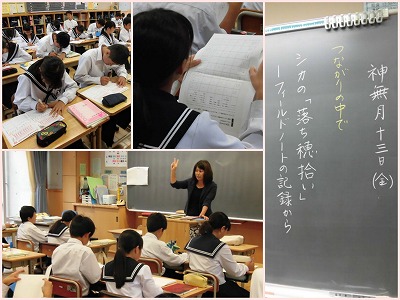 神無月十三日(金)
つながりの中で
シカの「落ち穂拾い」
ーフィールドノートの記録から